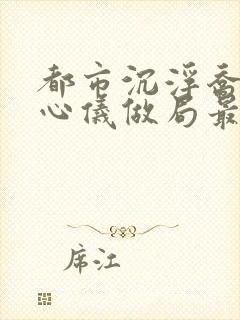 都市沉浮乔
心仪做局最
席江